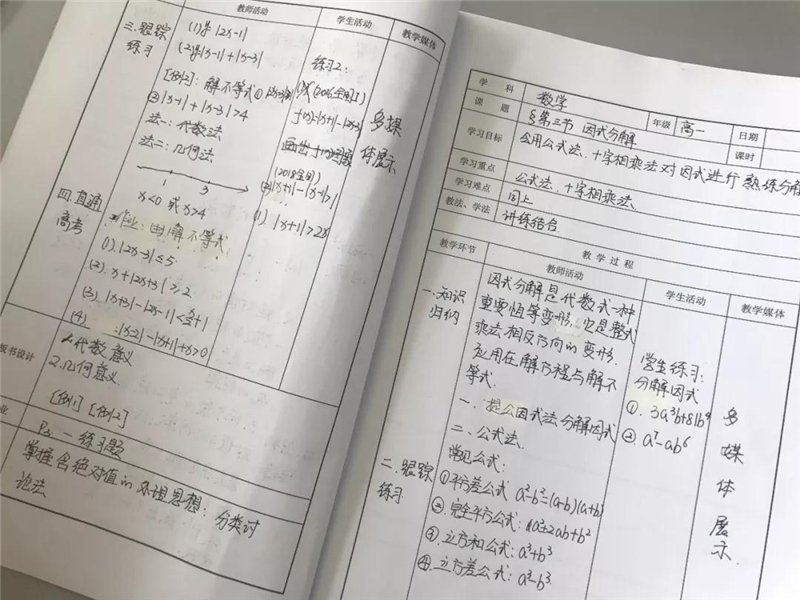 教师活动
学生活动
教学媒体
三.跟踪
练习
(1)求|2x-1|
(2)求|x-1|+|x-3|
[例2]:解不等式①
③|x-1|+|x-3|>4
法一:代数法
法二:几何法
1 3
x<0 或 x>4
四.直通
高考
作业: 解不等式
(1).|2x-3|≤5
(2). x+|2x+3|≥2
(3). |x+3|-|2x-1|<x/2+1
(4) |x-2|-|x+1|+x>0
练习2:
(2016全国I)
f(x)=|x+1|-|2x-3|
画出
(2018全国)
|x+1|-|x-1|>1
(1). |x+1|>2x
多媒
体展示
板书设计
1.代数意义
2.几何意义
[例1] [例2]
业
P 一练习题
掌握含绝对值的 思想:分类讨
论法
学 科
数学
年级
高一
日期
课 题
§第三节 因式分解
课时
学习目标
会用公式法、十字相乘法对因式进行熟练分解
学习重点
公式法、十字相乘法
学习难点
同上
教法、学法
讲练结合
教 学 过 程
教学环节
教师活动
学生活动
教学媒体
一.知识
归纳
因式分解是代数式一种
重要恒等变形.它是整式
乘法相反方向的变形.
应用在解方程与解不
等式.
一、提公因式法分解因式
二、公式法.
常见公式:
①平方差公式 a²-b²=(a-b)(a+b)
②.完全平方公式: a²+2ab+b²
③.立方和公式: a³+b³
④.立方差公式: a³-b³
二.跟踪
练习
学生练习:
分解因式
①. 3a³b+81b⁴
②. a⁷-ab⁶
多
媒
体
展
示